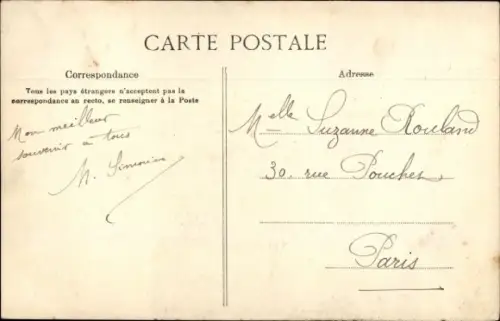 CARTE POSTALE
Correspondance
Tous les pays étrangers n'acceptent pas la
correspondance au recto, se renseigner à la Poste
Mon meilleur
souvenir a tous
Adresse
Melle Suzanne Rouland
30. rue Pouchet
Paris